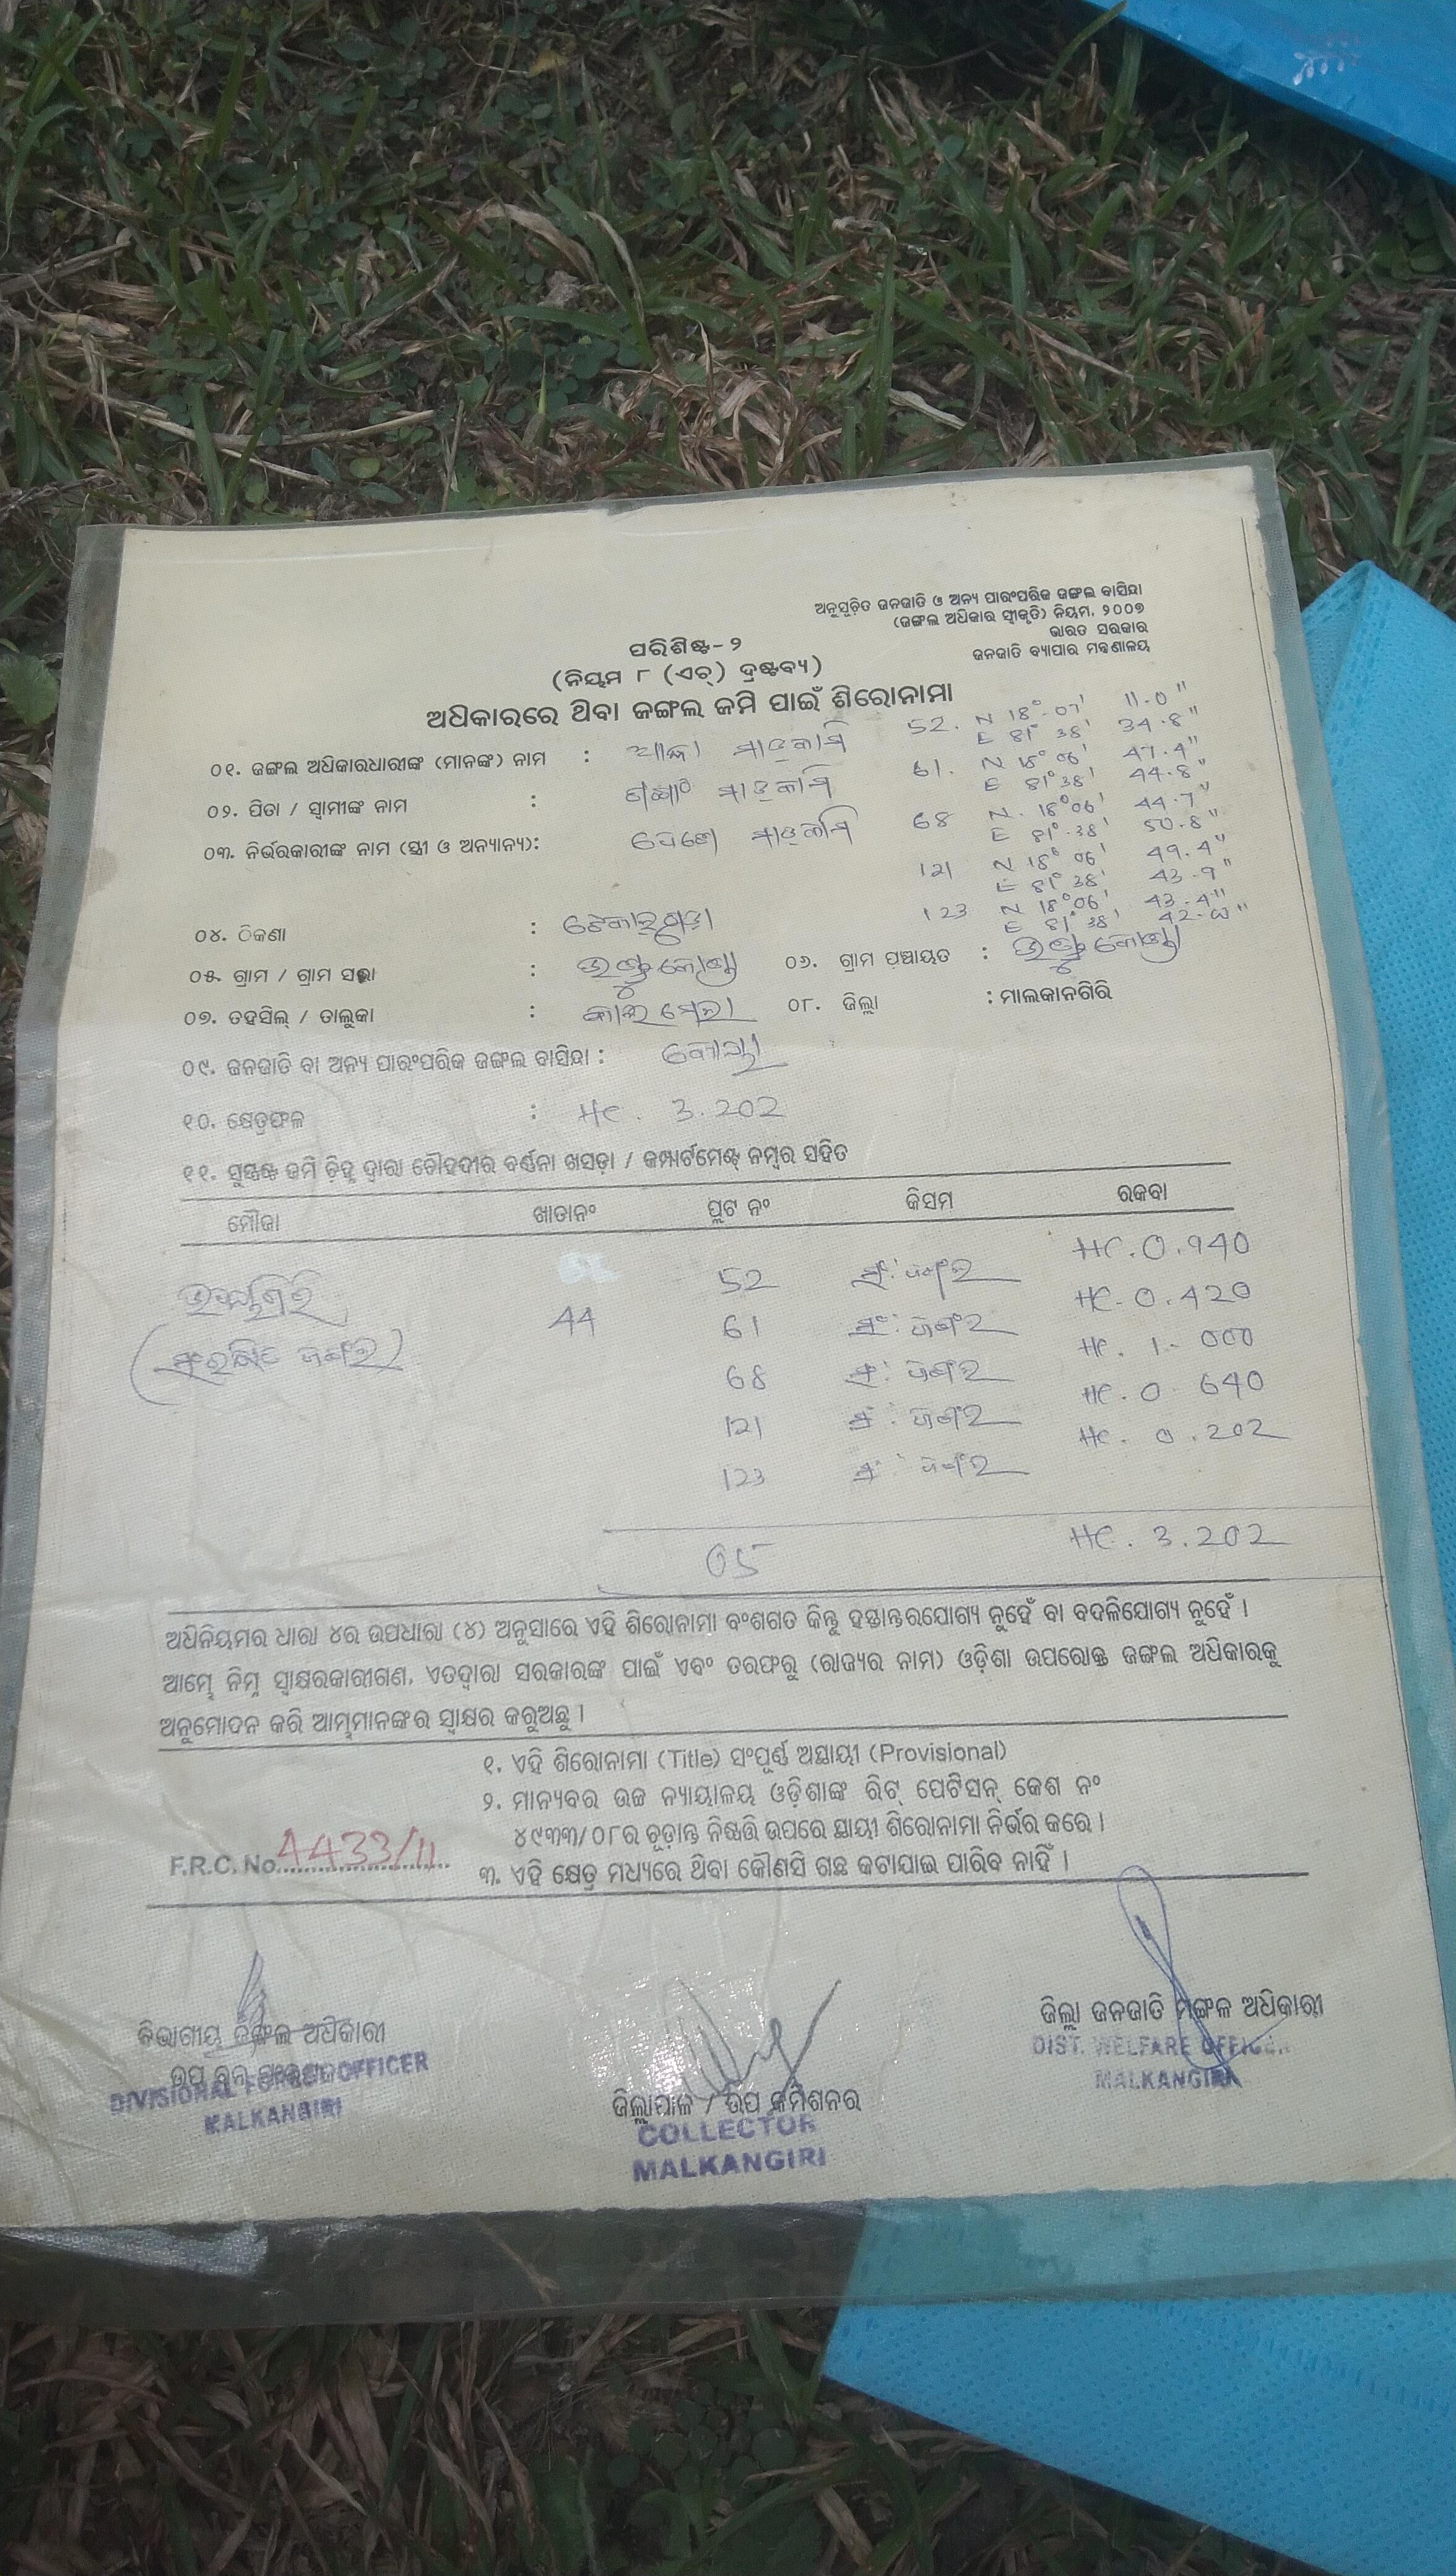 ଅନୁସୂଚିତ ଜନଜାତି ଓ ଅନ୍ୟ ପାରଂପରିକ ଜଙ୍ଗଲ ବାସିନ୍ଦା
(ଜଙ୍ଗଲ ଅଧିକାର ସ୍ୱୀକୃତି) ନିୟମ, ୨୦୦୭
ଭାରତ ସରକାର
ଜନଜାତି ବ୍ୟାପାର ମନ୍ତ୍ରଣାଳୟ
ପରିଶିଷ୍ଟ-୨
(ନିୟମ ୮ (ଏଚ୍) ଦ୍ରଷ୍ଟବ୍ୟ)
ଅଧିକାରରେ ଥିବା ଜଙ୍ଗଲ ଜମି ପାଇଁ ଶିରୋନାମା
52. N 18° 07' 11.0"
E 81° 38' 34.8"
୦୧. ଜଙ୍ଗଲ ଅଧିକାରଧାରୀଙ୍କ (ମାନଙ୍କ) ନାମ : ମାଡ଼କାମି
61. N 18° 06' 47.4"
E 81° 38' 44.8"
୦୨. ପିତା / ସ୍ୱାମୀଙ୍କ ନାମ : ମାଡ଼କାମି
68 N 18° 06' 44.7"
E 81° 38' 50.8"
୦୩. ନିର୍ଭରକାରୀଙ୍କ ନାମ (ସ୍ତ୍ରୀ ଓ ଅନ୍ୟାନ୍ୟ): ମାଡ଼କାମି
121 N 18° 06' 49.4"
E 81° 38' 43.9"
123 N 18° 06' 43.4"
E 81° 38'
୦୪. ଠିକଣା : ଟେକାଲଗୁଡ଼ା
୦୫. ଗ୍ରାମ / ଗ୍ରାମ ସଭା : ୦୬. ଗ୍ରାମ ପଞ୍ଚାୟତ :
୦୭. ତହସିଲ୍ / ତାଲୁକା : କାଲିମେଲା ୦୮. ଜିଲ୍ଲା : ମାଲକାନଗିରି
୦୯. ଜନଜାତି ବା ଅନ୍ୟ ପାରଂପରିକ ଜଙ୍ଗଲ ବାସିନ୍ଦା : କୋୟା
୧୦. କ୍ଷେତ୍ରଫଳ : HC. 3.202
୧୧. ସୁସ୍ପଷ୍ଟ ଜମି ଚିହ୍ନ ଦ୍ୱାରା ଚୌହଦୀର ବର୍ଣ୍ଣନା ଖସଡ଼ା / କମ୍ପାର୍ଟମେଣ୍ଟ୍ ନମ୍ବର ସହିତ
ମୌଜା ଖାତାନଂ ପ୍ଲଟ ନଂ କିସମ ରକବା
52 ସଂ: ଜଙ୍ଗଲ HC. 0.940
44 61 ସଂ: ଜଙ୍ଗଲ HC. 0.420
(ସଂରକ୍ଷିତ ଜଙ୍ଗଲ) 68 ସଂ: ଜଙ୍ଗଲ HC. 1.000
121 ସଂ: ଜଙ୍ଗଲ HC. 0.640
123 ସଂ: ଜଙ୍ଗଲ HC. 0.202
05 HC. 3.202
ଅଧିନିୟମର ଧାରା ୪ର ଉପଧାରା (୪) ଅନୁସାରେ ଏହି ଶିରୋନାମା ବଂଶଗତ କିନ୍ତୁ ହସ୍ତାନ୍ତରଯୋଗ୍ୟ ନୁହେଁ ବା ବଦଳିଯୋଗ୍ୟ ନୁହେଁ ।
ଆମ୍ଭେ ନିମ୍ନ ସ୍ୱାକ୍ଷରକାରୀଗଣ, ଏତଦ୍ୱାରା ସରକାରଙ୍କ ପାଇଁ ଏବଂ ତରଫରୁ (ରାଜ୍ୟର ନାମ) ଓଡ଼ିଶା ଉପରୋକ୍ତ ଜଙ୍ଗଲ ଅଧିକାରକୁ
ଅନୁମୋଦନ କରି ଆମ୍ଭମାନଙ୍କର ସ୍ୱାକ୍ଷର କରୁଅଛୁ ।
୧. ଏହି ଶିରୋନାମା (Title) ସଂପୂର୍ଣ୍ଣ ଅସ୍ଥାୟୀ (Provisional)
୨. ମାନ୍ୟବର ଉଚ୍ଚ ନ୍ୟାୟାଳୟ ଓଡ଼ିଶାଙ୍କ ରିଟ୍ ପେଟିସନ୍ କେଶ ନଂ
୪୯୩୩/୦୮ର ଚୂଡ଼ାନ୍ତ ନିଷ୍ପତ୍ତି ଉପରେ ସ୍ଥାୟୀ ଶିରୋନାମା ନିର୍ଭର କରେ ।
F.R.C. No. 4433/11
୩. ଏହି କ୍ଷେତ୍ର ମଧ୍ୟରେ ଥିବା କୌଣସି ଗଛ କଟାଯାଇ ପାରିବ ନାହିଁ ।
ବିଭାଗୀୟ ଜଙ୍ଗଲ ଅଧିକାରୀ
ଉପ ବନ ସଂରକ୍ଷକ
DIVISIONAL FOREST OFFICER
MALKANGIRI
ଜିଲ୍ଲାପାଳ / ଉପ କମିଶନର
COLLECTOR
MALKANGIRI
ଜିଲ୍ଲା ଜନଜାତି ମଙ୍ଗଳ ଅଧିକାରୀ
DIST. WELFARE OFFICER
MALKANGIRI